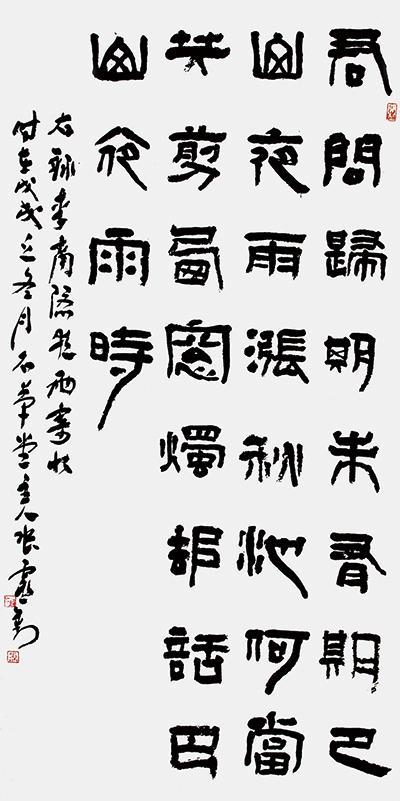 君問歸期未有期巴
山夜雨漲秋池何當
共剪西窗燭却話巴
山夜雨時
右録李商隱夜雨寄北
時在戊戌之冬月石草堂主人張